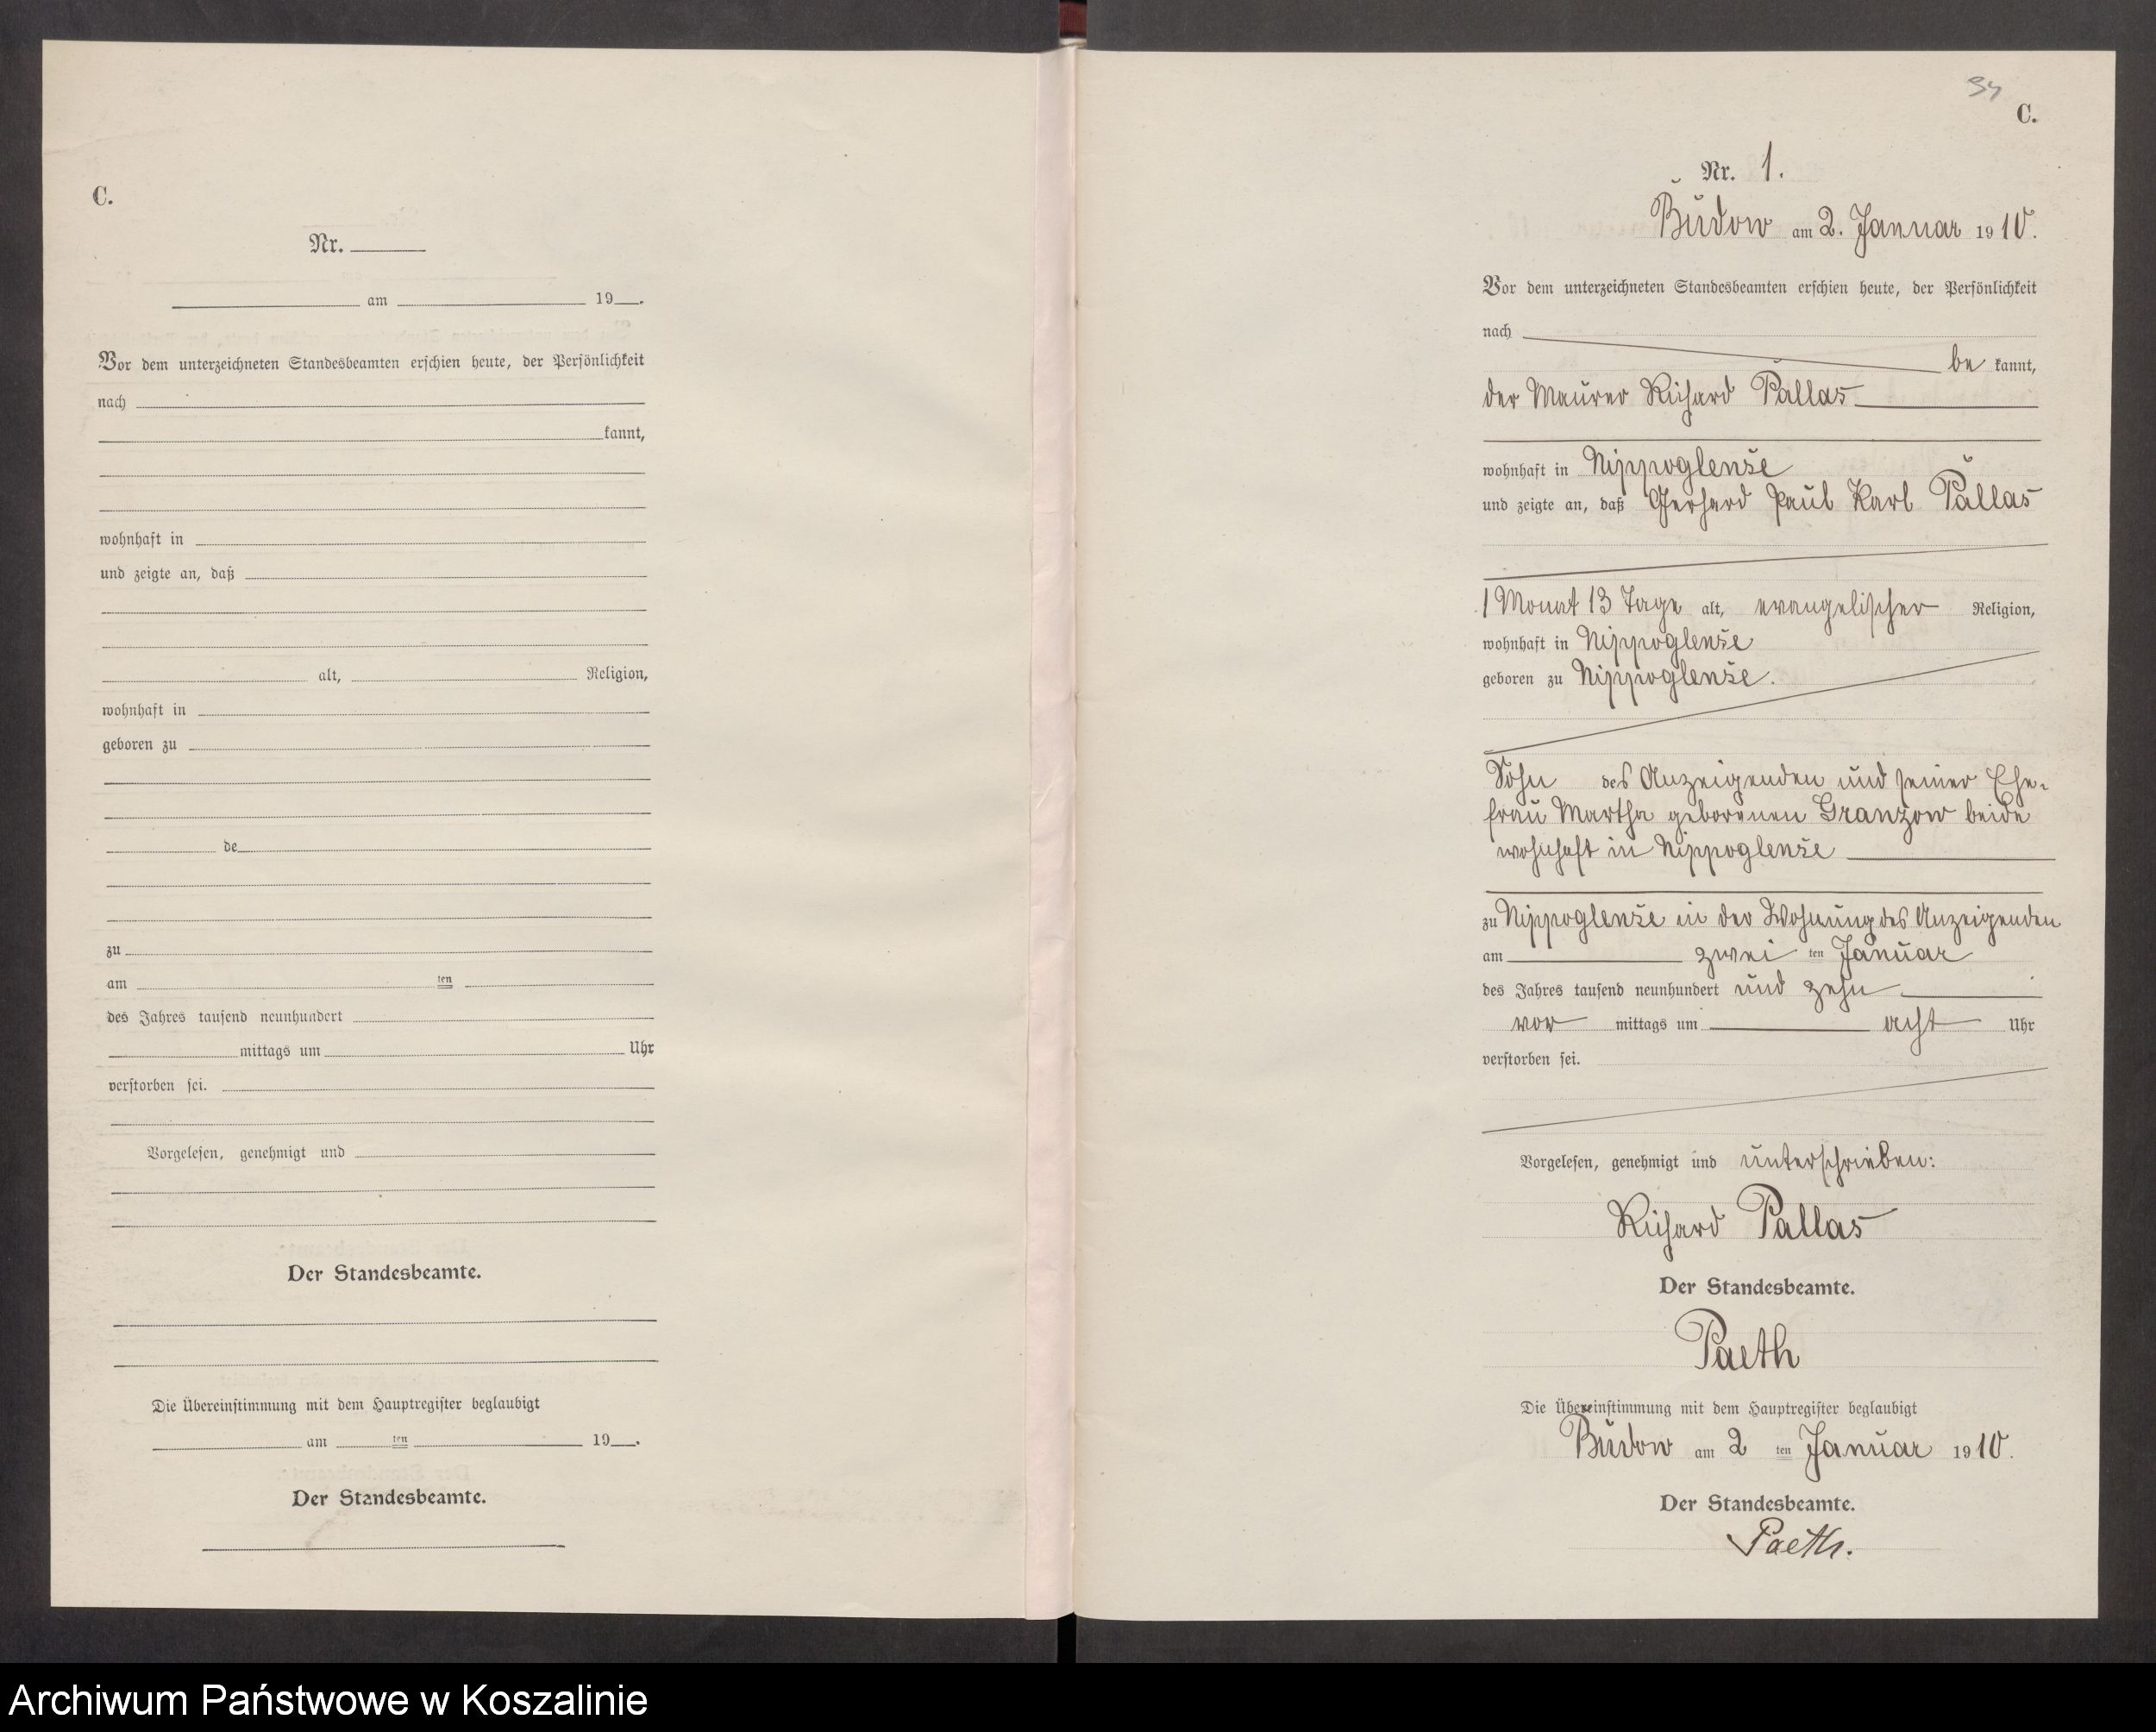 C.
Nr.
am 19 .
Vor dem unterzeichneten Standesbeamten erschien heute, der Persönlichkeit
nach
kannt,
wohnhaft in
und zeigte an, daß
alt, Religion,
wohnhaft in
geboren zu
de
zu
am ten
des Jahres tausend neunhundert
mittags um Uhr
verstorben sei.
Vorgelesen, genehmigt und
Der Standesbeamte.
Die Übereinstimmung mit dem Hauptregister beglaubigt
am ten 19 .
Der Standesbeamte.
C.
Nr. 1.
Budow am 2. Januar 1910.
Vor dem unterzeichneten Standesbeamten erschien heute, der Persönlichkeit
nach
be kannt,
der Maurer Richard Pallas
wohnhaft in Nippoglense
und zeigte an, daß Gerhard Paul Karl Pallas
1 Monat 13 Tage alt, evangelischer Religion,
wohnhaft in Nippoglense
geboren zu Nippoglense.
Sohn des Anzeigenden und seiner Ehe-
frau Martha geborenen Granzow beide
wohnhaft in Nippoglense
zu Nippoglense in der Wohnung des Anzeigenden
am zwei ten Januar
des Jahres tausend neunhundert und zehn
vor mittags um acht Uhr
verstorben sei.
Vorgelesen, genehmigt und unterschrieben:
Richard Pallas
Der Standesbeamte.
Paeth
Die Übereinstimmung mit dem Hauptregister beglaubigt
Budow am 2 ten Januar 1910.
Der Standesbeamte.
Paeth.
Archiwum Państwowe w Koszalinie